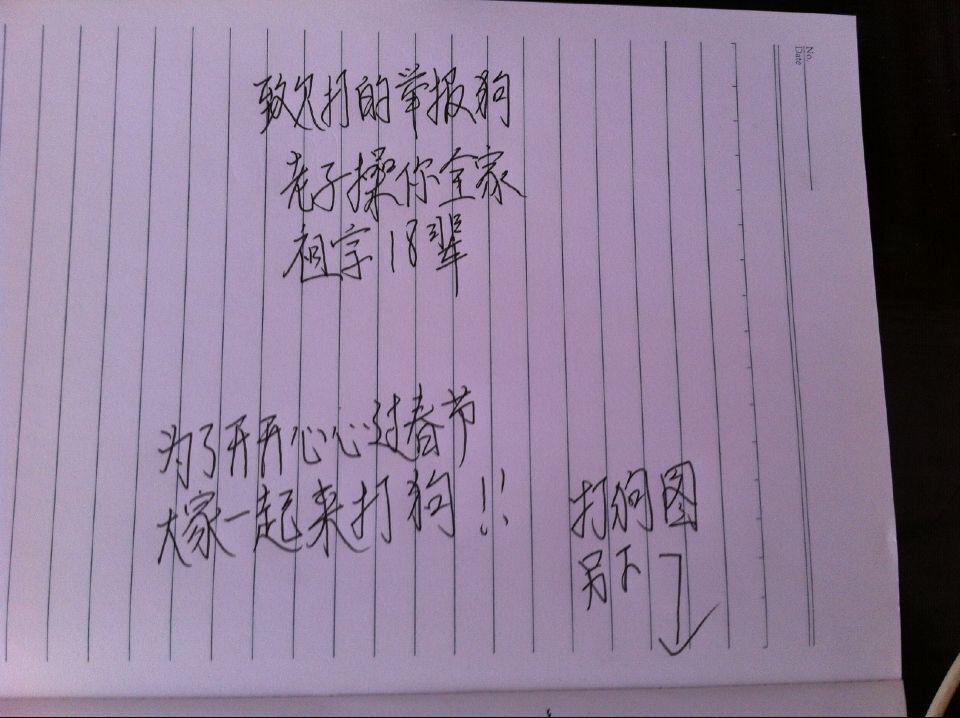 致欠打的举报狗
老子操你全家
祖宗18辈
为了开开心心过春节
大家一起来打狗!!
打狗图
另下
No.
Date